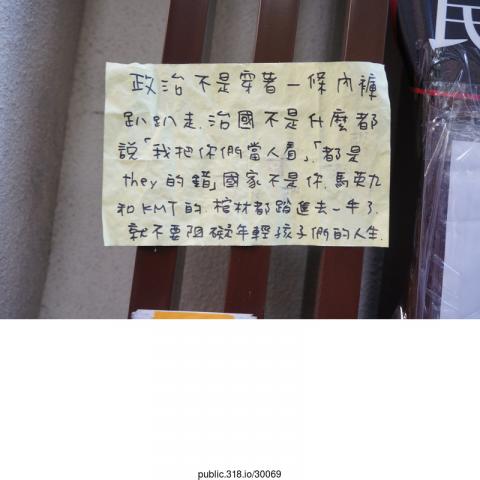 政治不是穿著一條內褲
趴趴走.治國不是什麼都
說「我把你們當人看」,「都是
they的錯」國家不是你.馬英九
和KMT的.棺材都踏進去一半了.
就不要阻礙年輕孩子們的人生.
民
public.318.io/30069